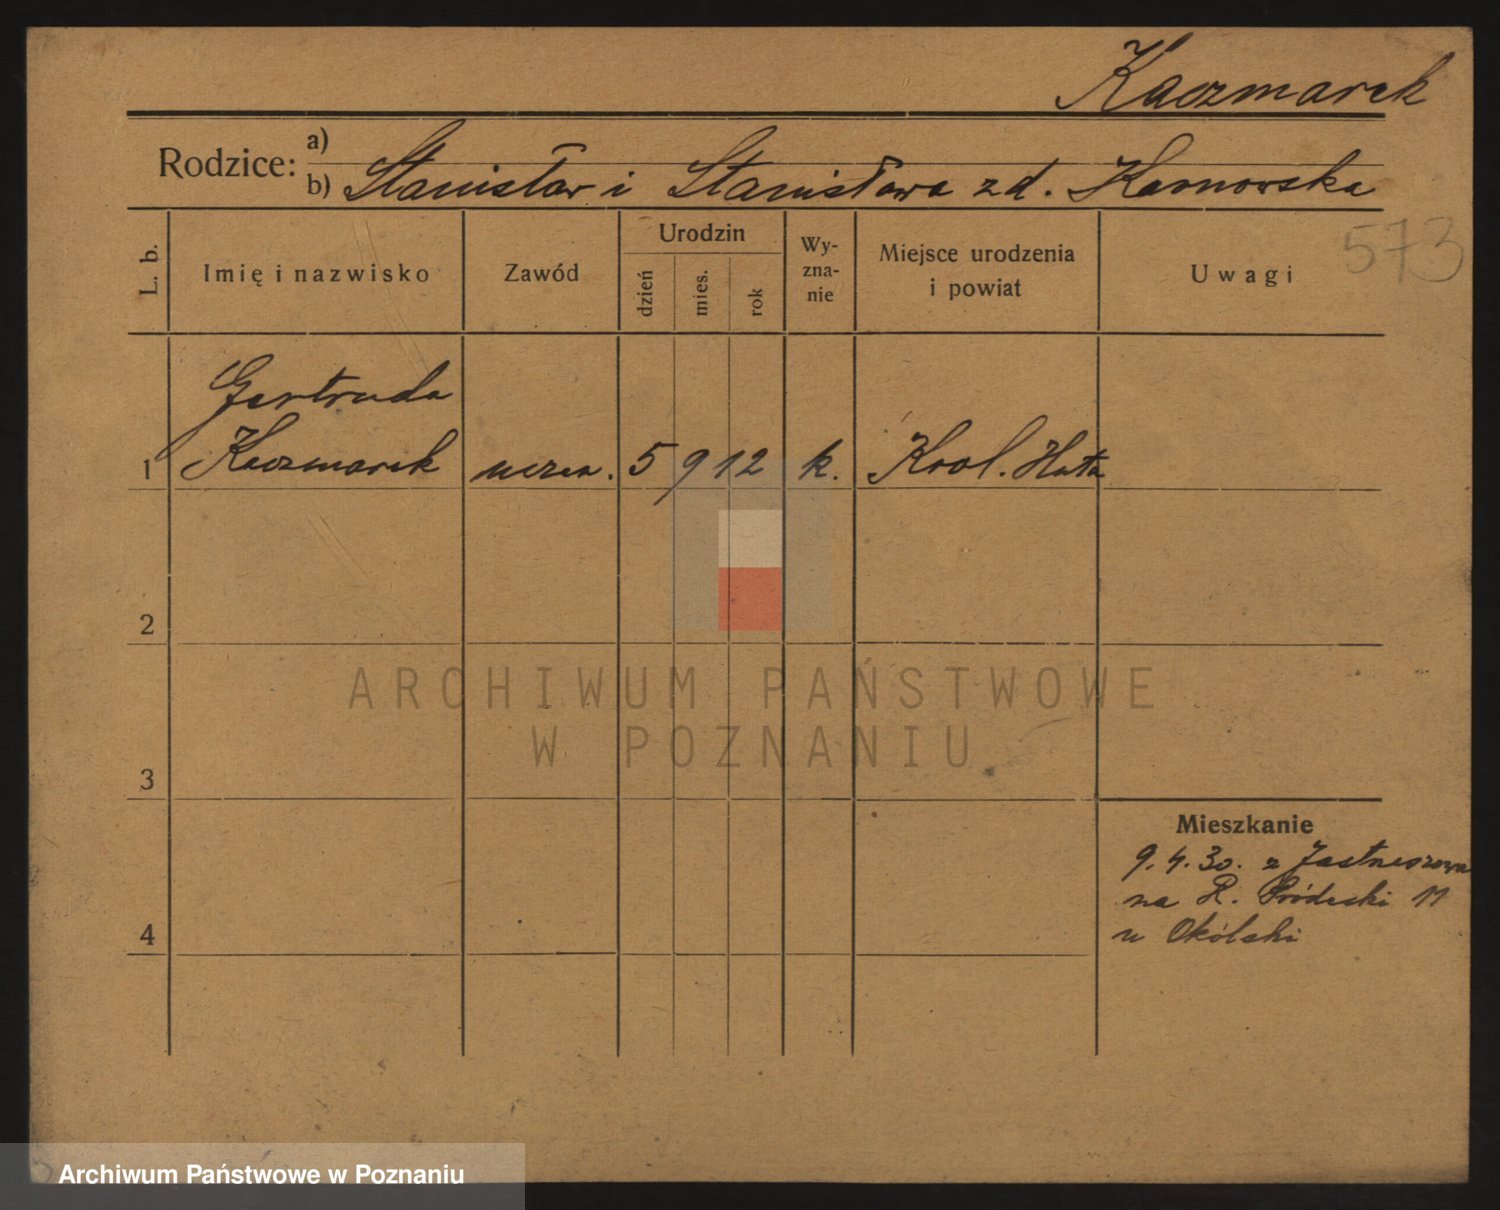 Kaczmarek
Rodzice: a)
b) Stanisław i Stanisława zd. Karnowska
573
L. b.
Imię i nazwisko
Zawód
Urodzin
dzień
mies.
rok
Wy-
zna-
nie
Miejsce urodzenia
i powiat
Uwagi
Gertruda
1 Kaczmarek uczen. 5 9 12 k. Krol. Huta
2
3
4
Mieszkanie
9.4.30. z
na R. 11
u Okólski
ARCHIWUM PAŃSTWOWE
W POZNANIU
Archiwum Państwowe w Poznaniu